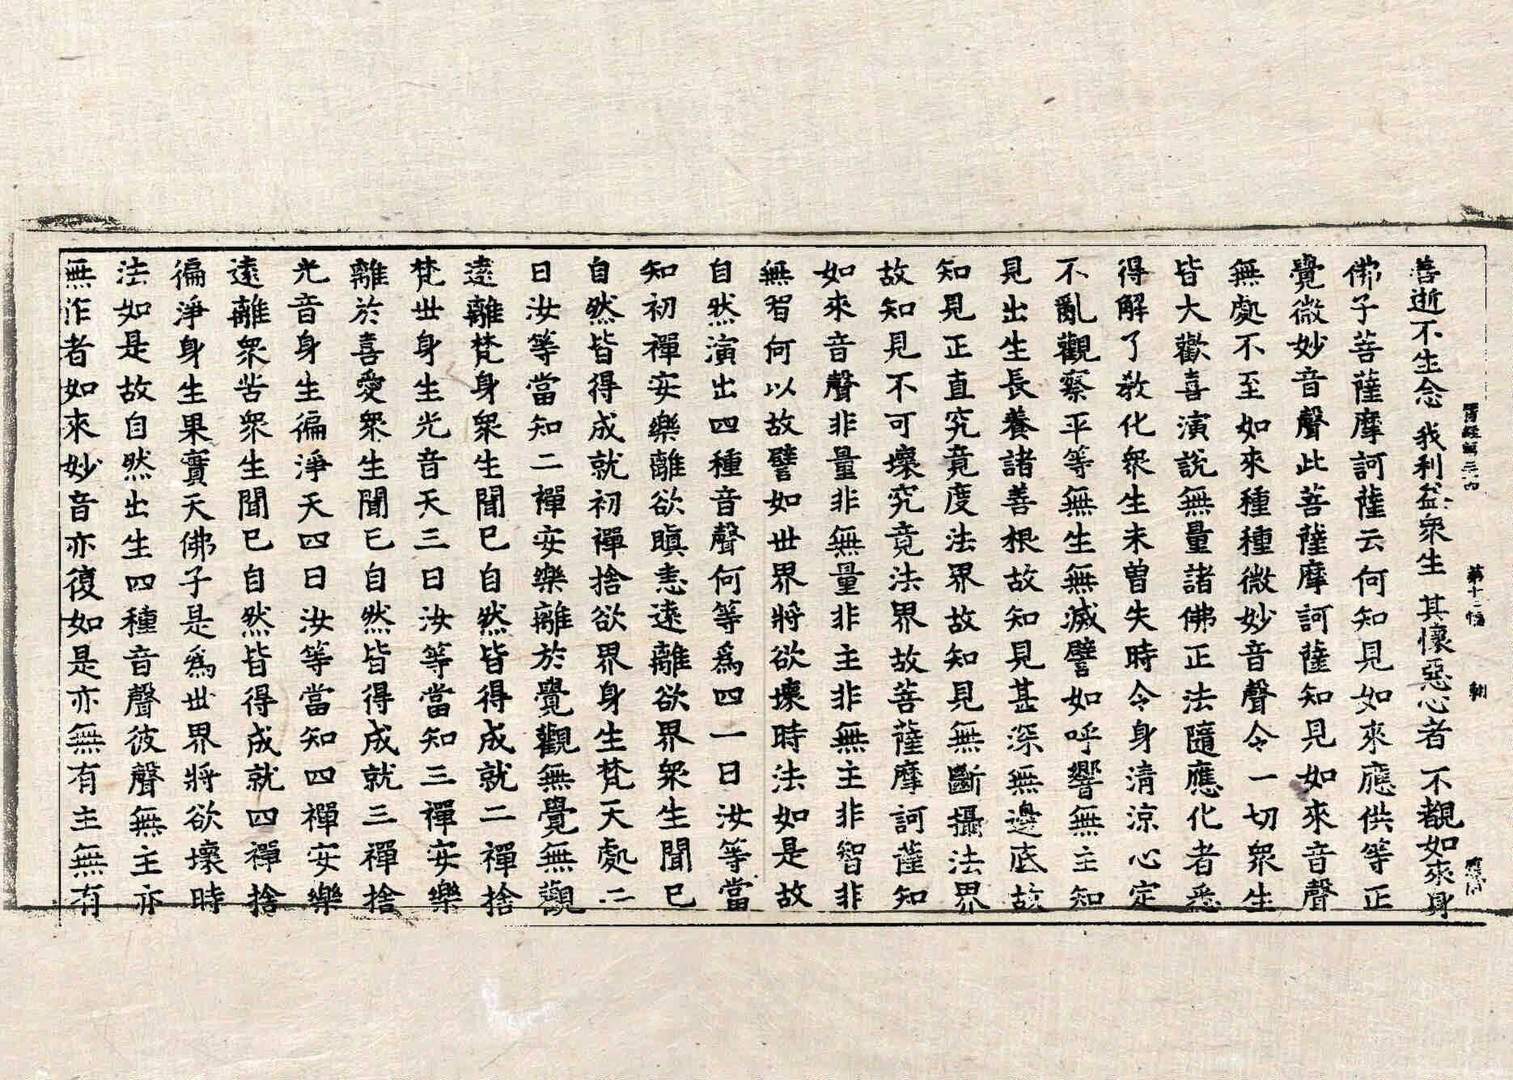 晋經第三十四 第十二幅 朝
善逝不生念 我利益衆生 其懷惡心者 不覩如來身
佛子菩薩摩訶薩云何知見如來應供等正
覺微妙音聲此菩薩摩訶薩知見如來音聲
無處不至如來種種微妙音聲令一切衆生
皆大歡喜演說無量諸佛正法隨應化者悉
得解了教化衆生未曾失時令身清涼心定
不亂觀察平等無生無滅譬如呼響無主知
見出生長養諸善根故知見甚深無邊底故
知見正直究竟度法界故知見無斷攝法界
故知見不可壞究竟法界故菩薩摩訶薩知
如來音聲非量非無量非主非無主非智非
無智何以故譬如世界將欲壞時法如是故
自然演出四種音聲何等爲四一曰汝等當
知初禪安樂離欲瞋恚遠離欲界衆生聞已
自然皆得成就初禪捨欲界身生梵天處二
曰汝等當知二禪安樂離於覺觀無覺無觀
遠離梵身衆生聞已自然皆得成就二禪捨
梵世身生光音天三曰汝等當知三禪安樂
離於喜愛衆生聞已自然皆得成就三禪捨
光音身生徧淨天四曰汝等當知四禪安樂
遠離衆苦衆生聞已自然皆得成就四禪捨
徧淨身生果實天佛子是爲世界將欲壞時
法如是故自然出生四種音聲彼聲無主亦
無作者如來妙音亦復如是亦無有主無有